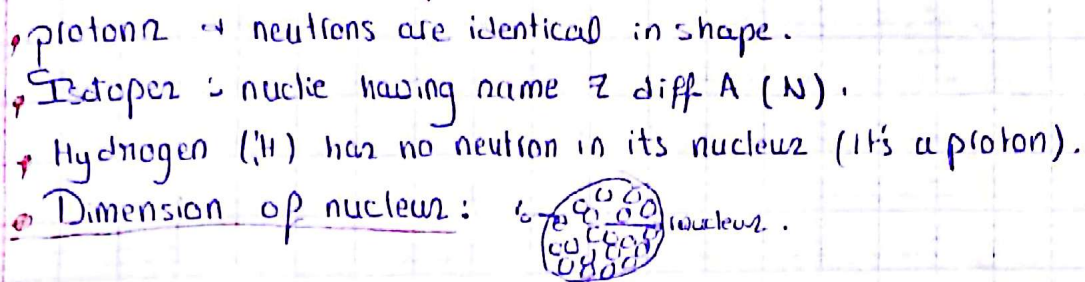 protons & neutrons are identical in shape.
Isotopes : nuclie having same Z diff A (N).
Hydrogen (¹₁H) has no neutron in its nucleus (It's a proton).
Dimension of nucleus: nucleus.